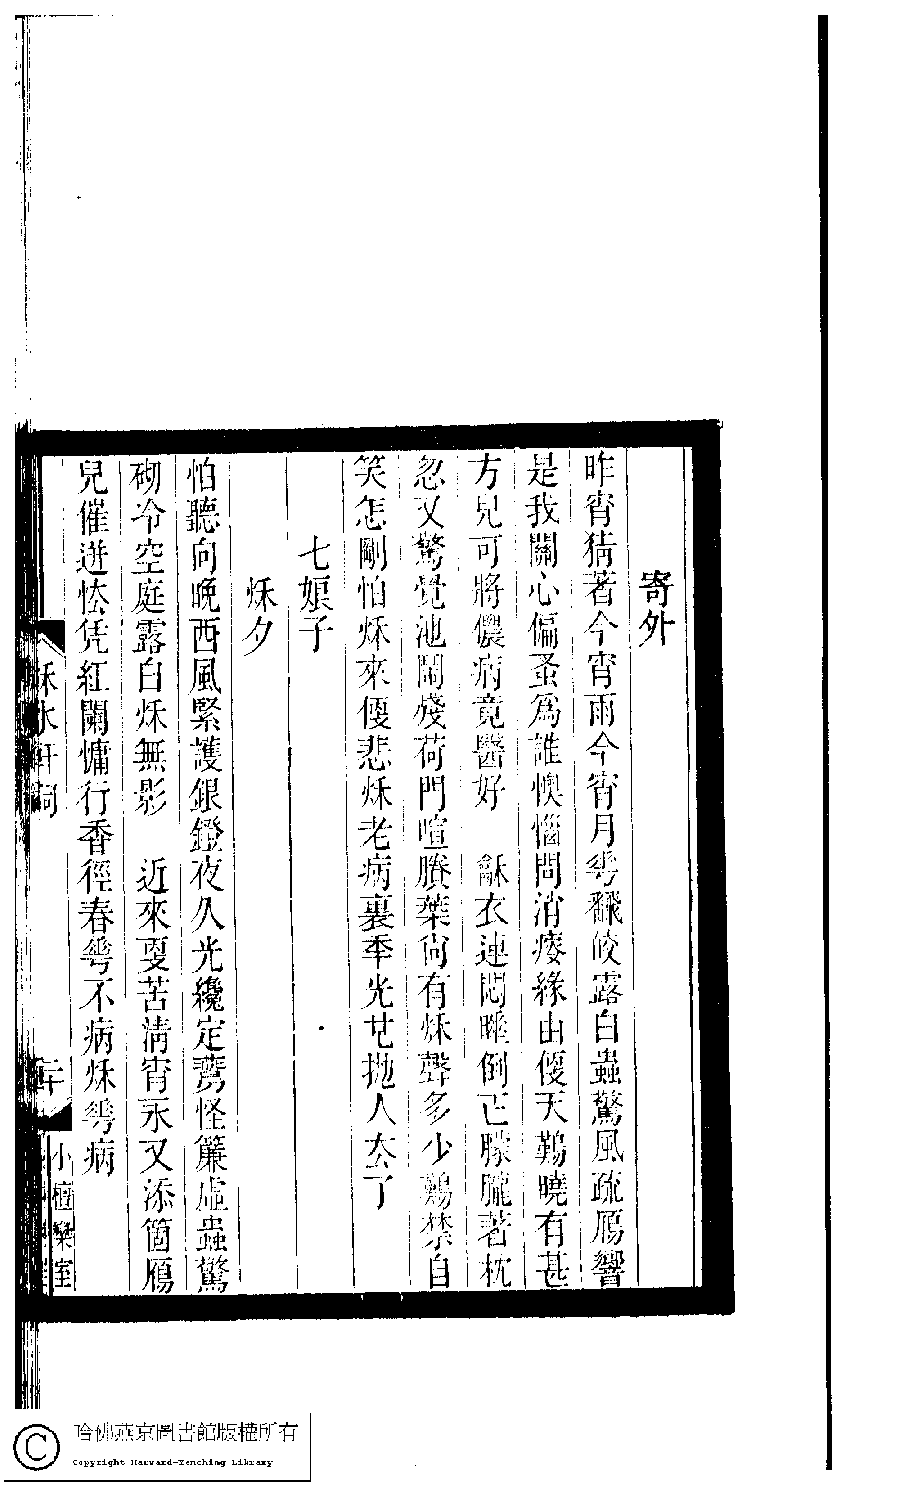 寄外
昨宵猜著今宵雨今宵月𠌶翻皎露白蟲驚風疏鴈響
是我關心偏蚤爲誰懊惱問消瘦緣由偃天鷄曉有甚
方兒可將儂病竟醫好　龢衣連悶睡倒正朦朧著枕
忽又驚覺池鬧殘荷門喧賸葉尙有秌聲多少難禁自
笑怎剛怕秌來偃悲秌老病裏秊光廿拋人厺了
七娘子
秌夕
怕聽向晚西風緊護銀鐙夜久光纔定𠷣怪簾虛蟲驚
砌冷空庭露白秌無影　近來㪅苦淸宵永又添箇鴈
兒催迸恡凭紅闌慵行香徑春𠌶不病秌𠌶病
秌水軒詞
二十
小檀欒室
哈佛燕京圖書館版權所有
Copyright Harvard-Yenching Library